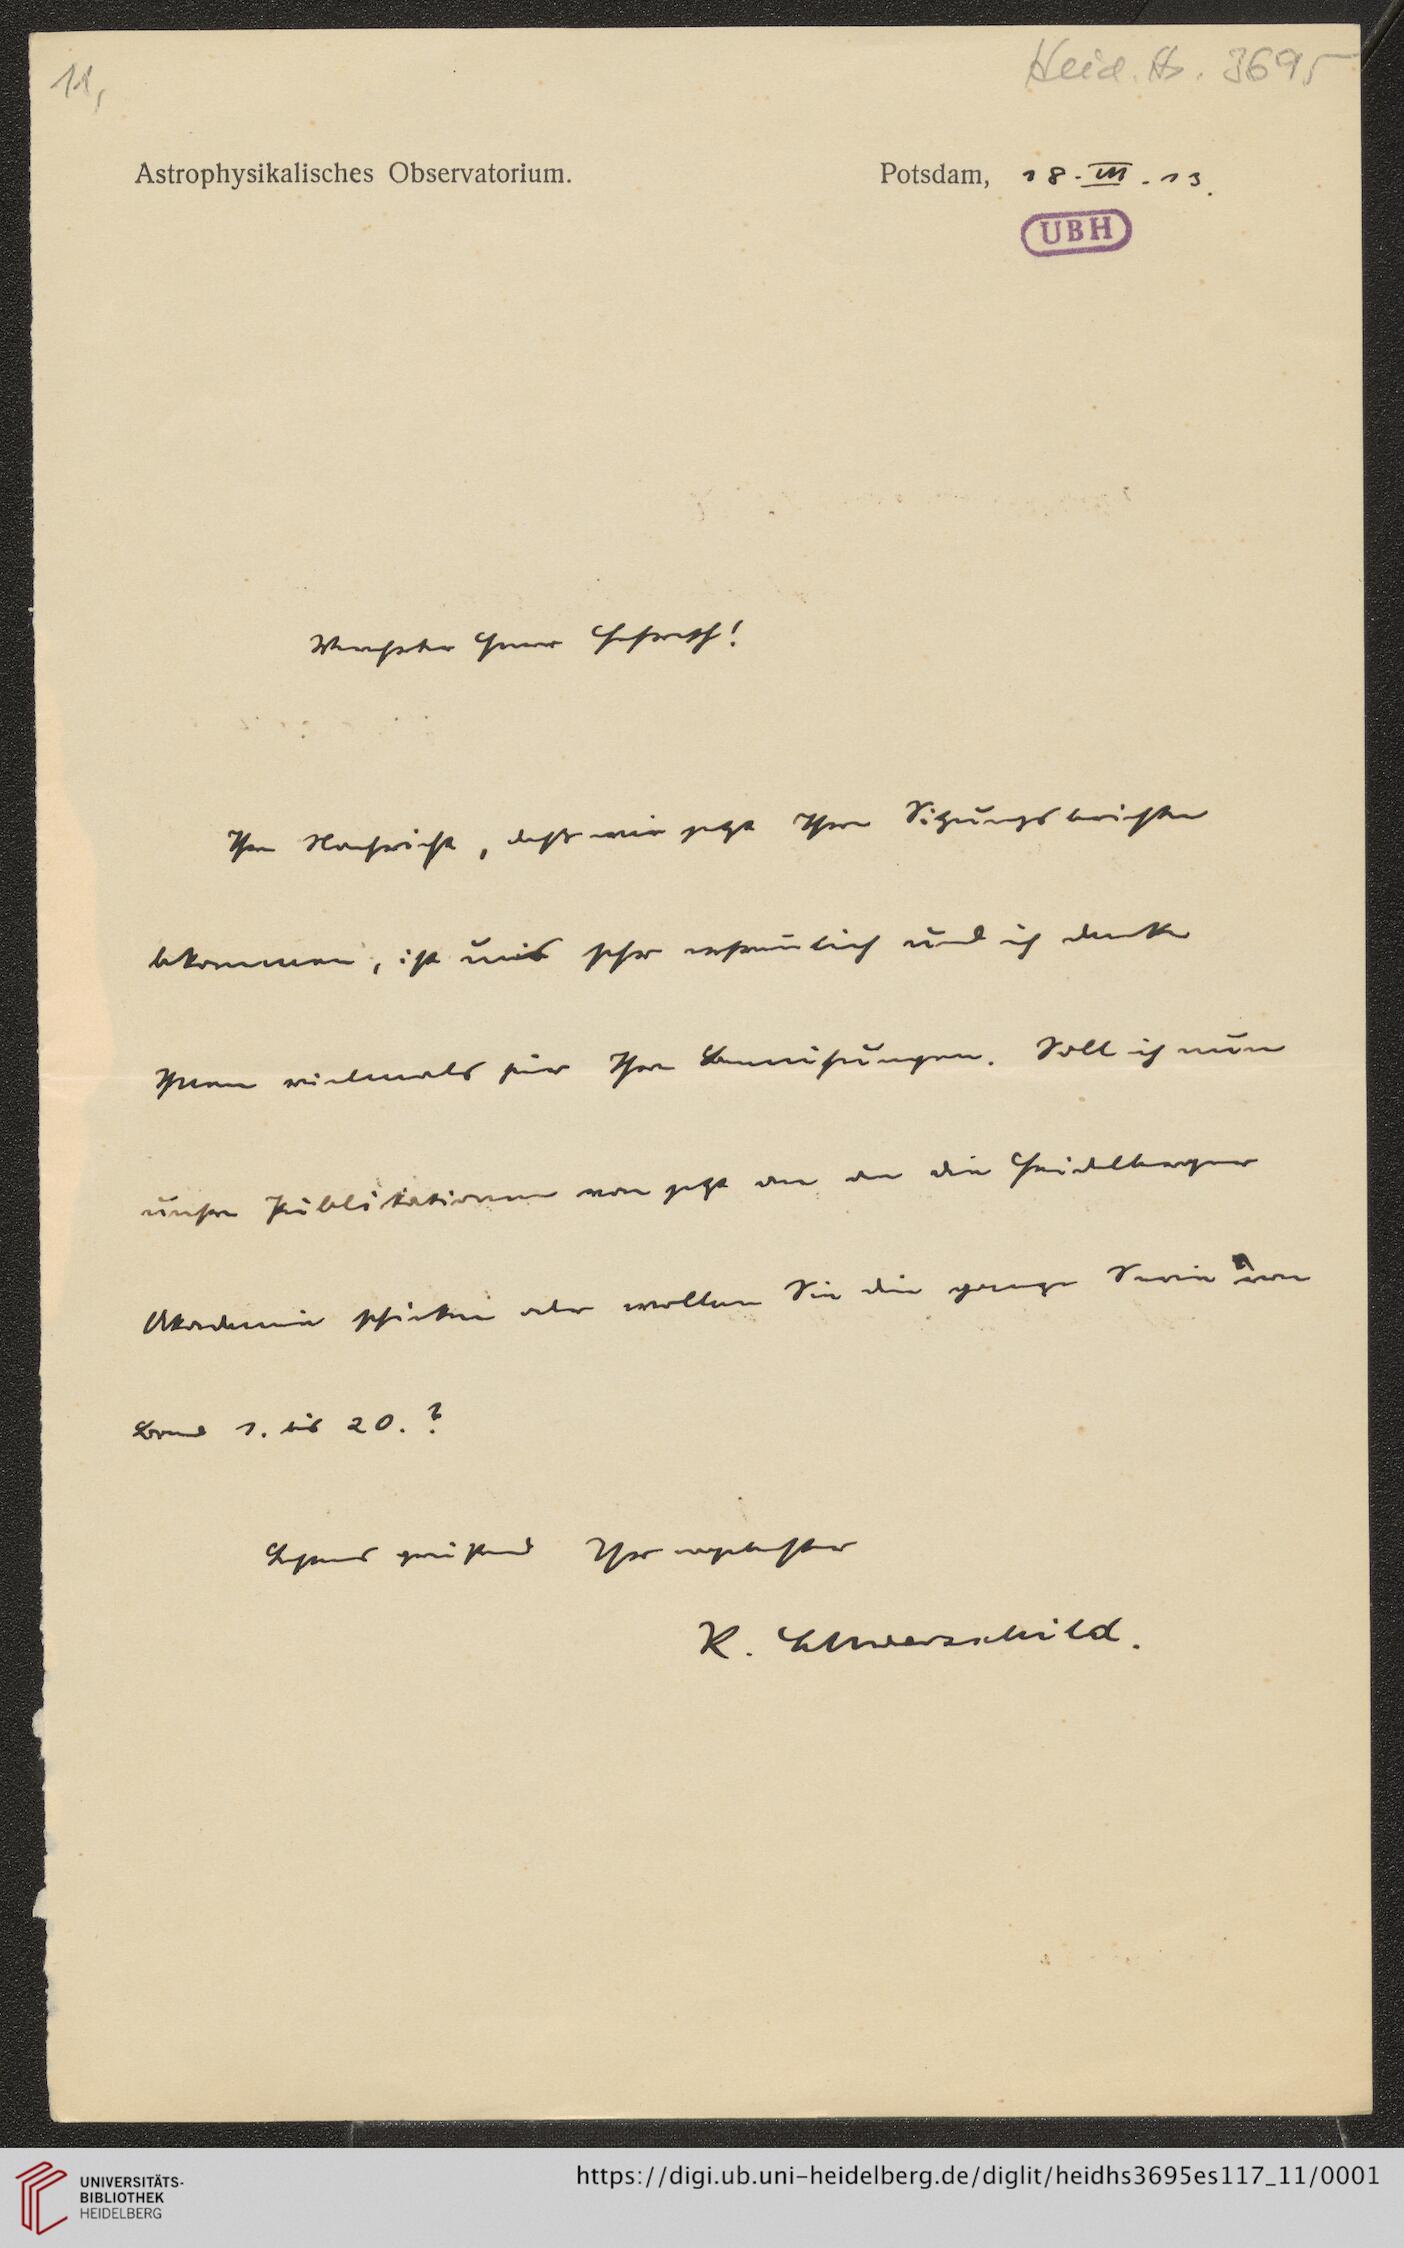 11,
Heid. Hs. 3695
Astrophysikalisches Observatorium.
Potsdam, 18. III. 13.
UBH
Verehrter Herr Hofrath!
Ihre Nachricht, daß wir jetzt Ihre Sitzungsberichte
bekommen, ist uns sehr erfreulich und ich danke
Ihnen vielmals für Ihre Bemühungen. Soll ich nun
unsre Publikationen von jetzt an an die Heidelberger
Akademie schicken oder wollen Sie die ganze Serie von
Band 1. bis 20.?
Bestens grüßend Ihr ergebenster
K. Schwarzschild.
UNIVERSITÄTS-
BIBLIOTHEK
HEIDELBERG
https://digi.ub.uni-heidelberg.de/diglit/heidhs3695es117_11/0001